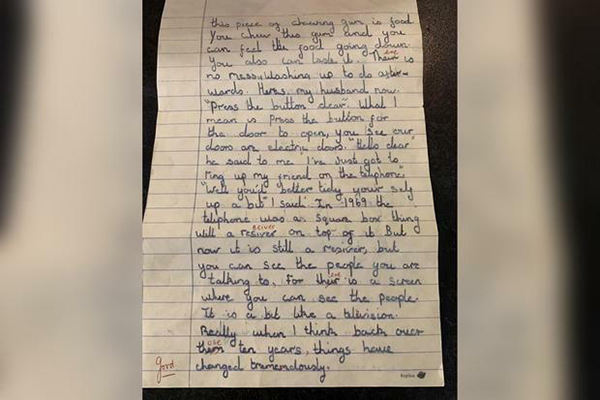 this piece of chewing gum is food.
You chew this gum and you
can feel the food going down.
You also can taste it. Their ere is
no mess, washing up to do after-
wards. Heres my husband now.
"Press the button dear". What I
mean is Press the button for
the door to open, you see our
doors are electric doors. "Hello dear"
he said to me "I've just got to
ring up my friend on the telephone".
"Well you'd better tidy your self
up a bit" I said. In 1969 the
teliphone was a square box thing
with a resiver ceiver on top of it But
now it is still a resiver, but
you can see the people you are
talking to. For their ere is a screen
where you can see the people.
It is a bit like a television.
Really when I think back over
them ose ten years, things have
changed tremendously.
Good